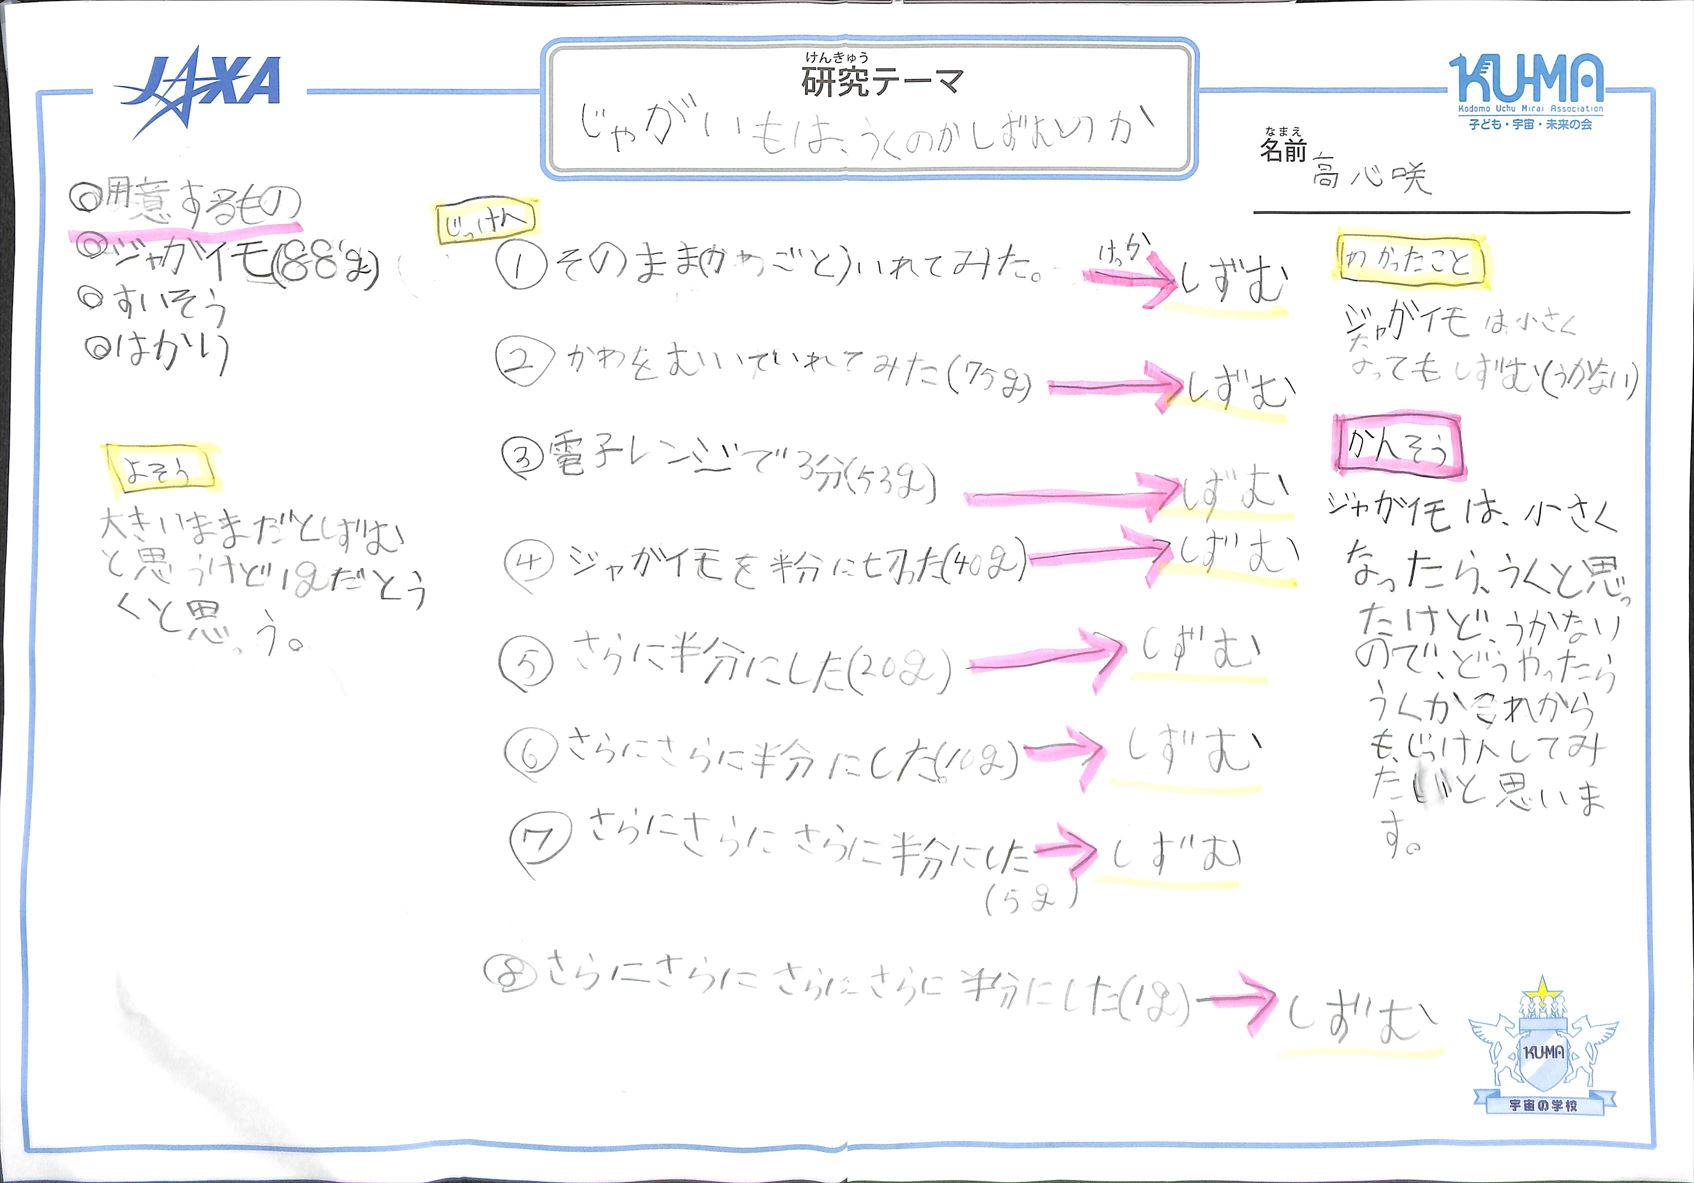 JAXA
けんきゅう
研究テーマ
じゃがいもは、うくのかしずむのか
KU-MA
Kodomo Uchu Mirai Association
子ども・宇宙・未来の会
なまえ
名前
高心咲
◎用意するもの
◎ジャガイモ(88g)
◎すいそう
◎はかり
よそう
大きいままだとしずむ
と思うけど1gだとう
くと思っう。
じっけん
①そのまま(かわごと)いれてみた。
けっか
しずむ
②かわをむいていれてみた(75g)
しずむ
③電子レンジで3分(53g)
しずむ
④ジャガイモを半分に切った(40g)
しずむ
⑤さらに半分にした(20g)
しずむ
⑥さらにさらに半分にした(10g)
しずむ
⑦さらにさらにさらに半分にした
(5g)
しずむ
⑧さらにさらにさらにさらに半分にした(1g)
しずむ
わかったこと
ジャガイモは小さく
なってもしずむ(うかない)
かんそう
ジャガイモは、小さく
なったら、うくと思っ
たけど、うかない
ので、どうやったら
うくかこれから
も、じっけんしてみ
たいと思いま
す。
KU-MA
宇宙の学校